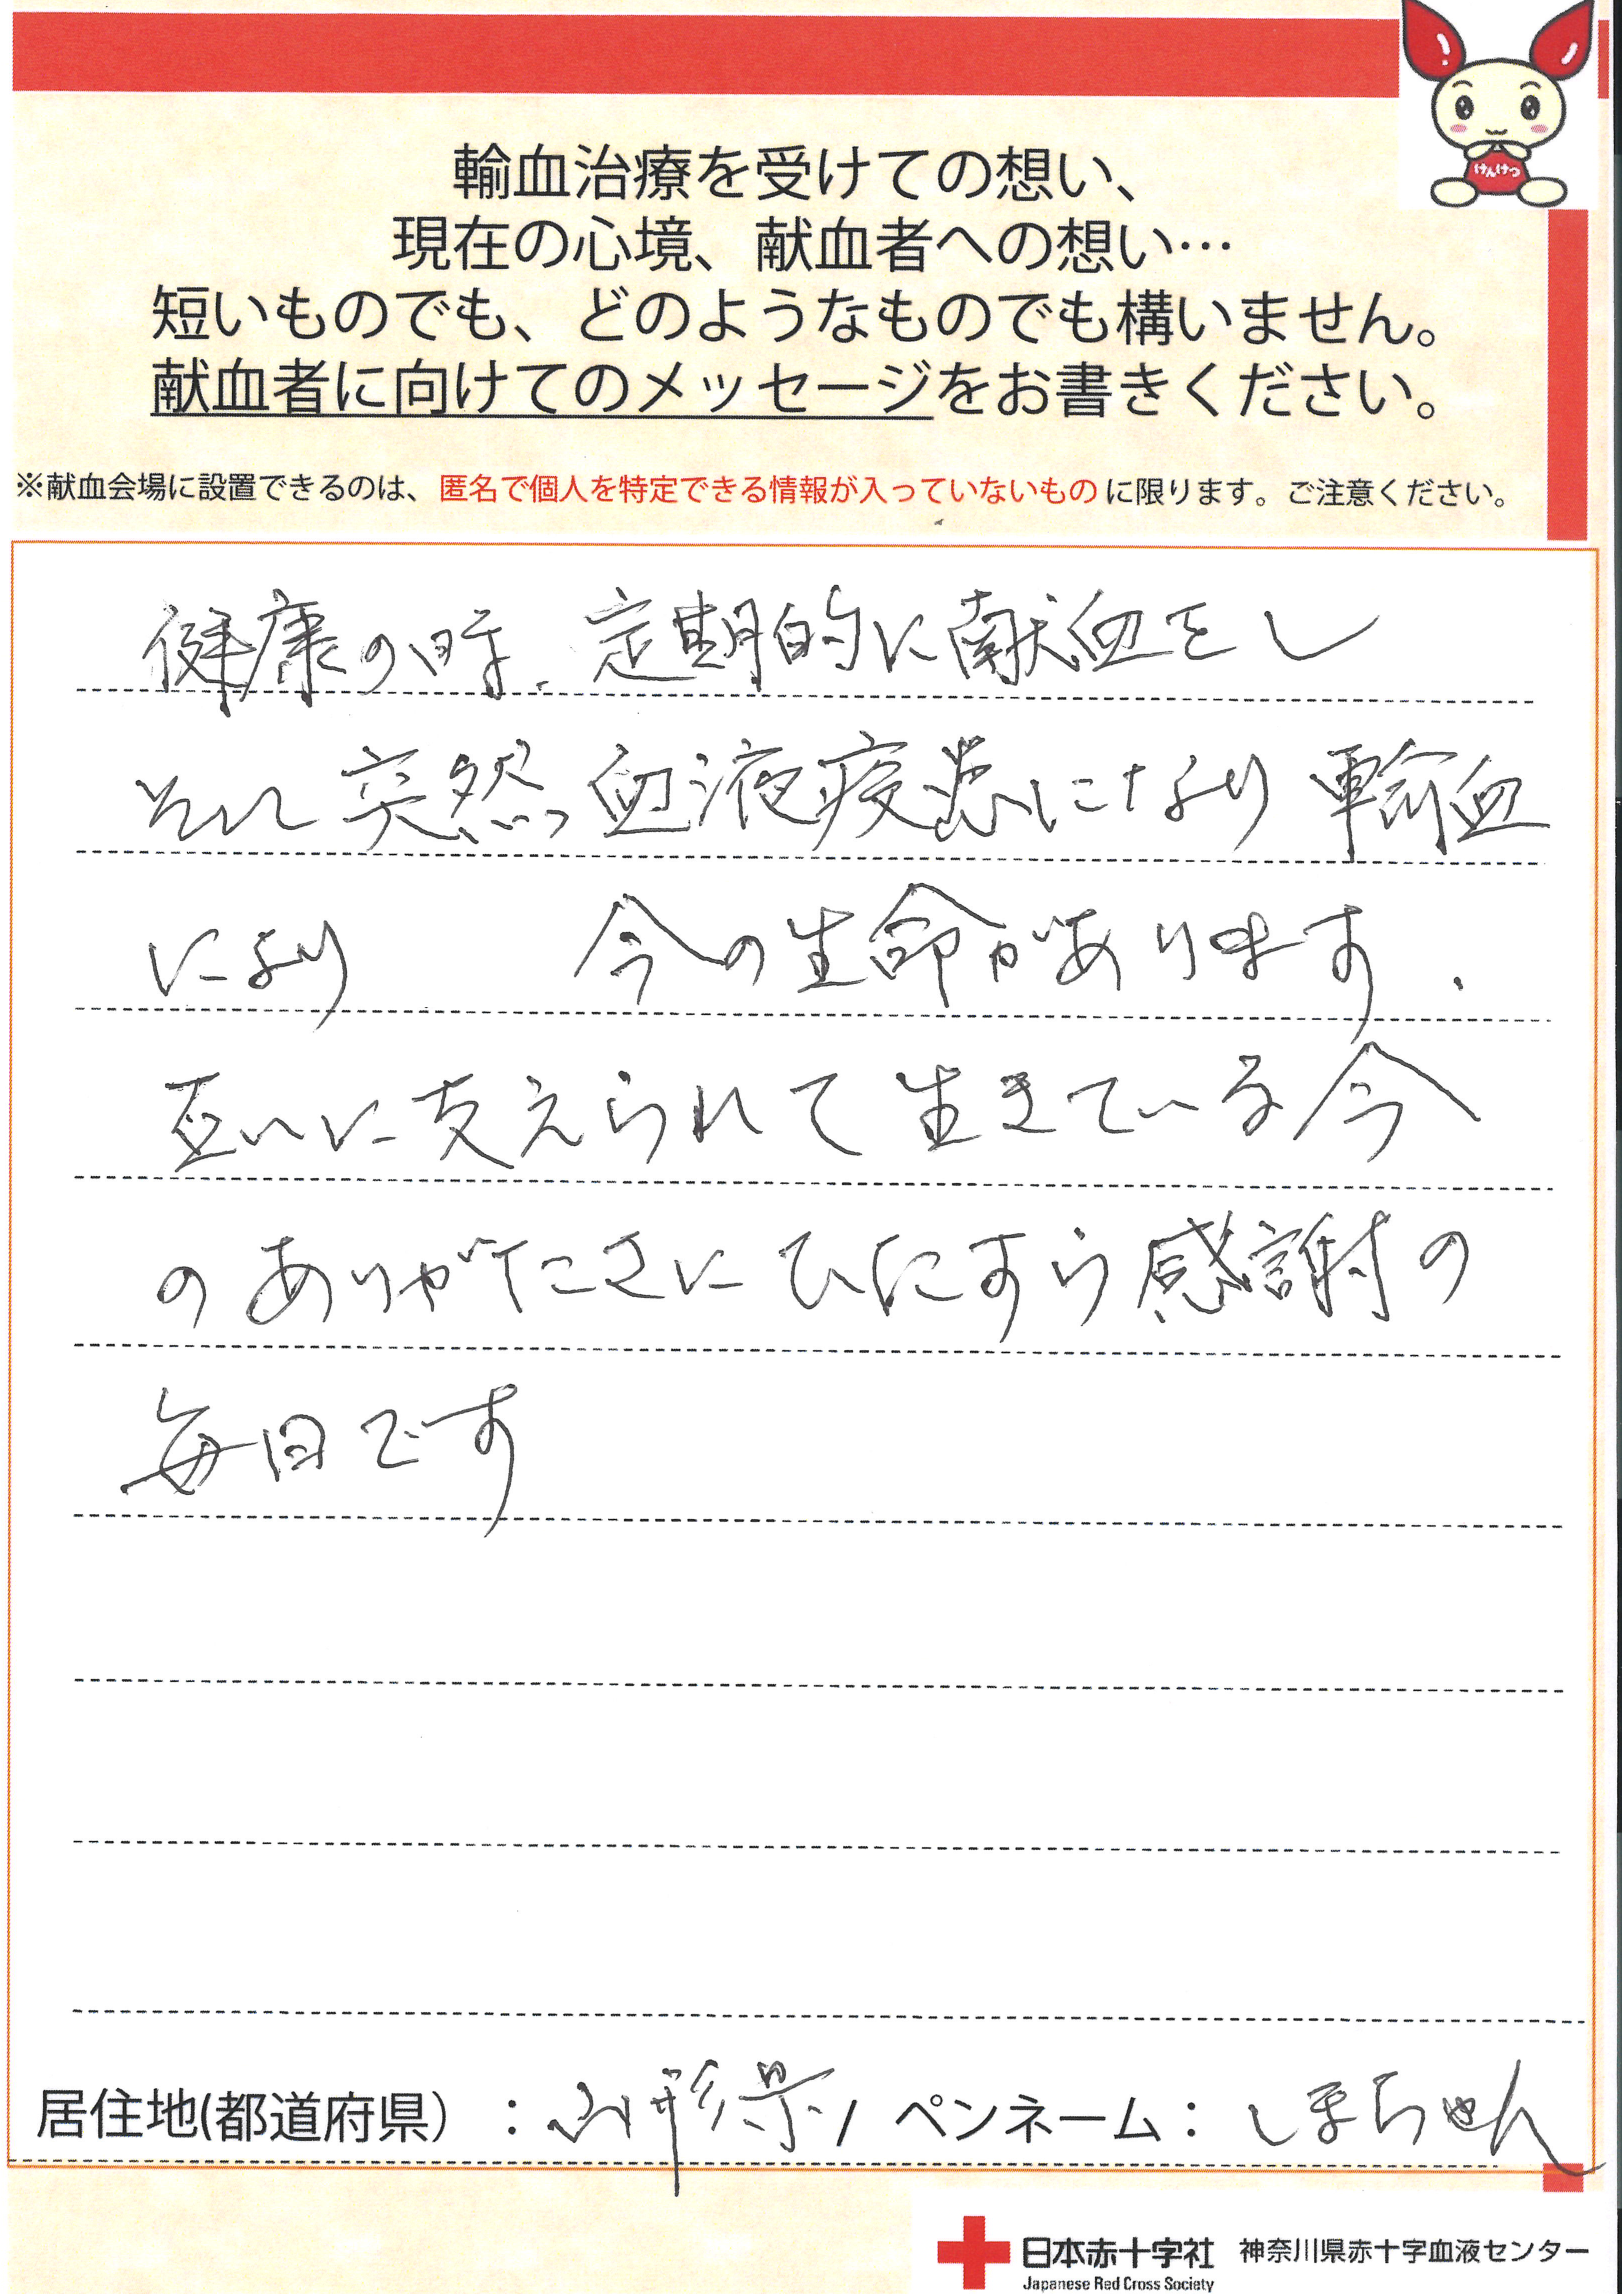 けんけつ
輸血治療を受けての想い、
現在の心境、献血者への想い…
短いものでも、どのようなものでも構いません。
献血者に向けてのメッセージをお書きください。
※献血会場に設置できるのは、匿名で個人を特定できる情報が入っていないものに限ります。ご注意ください。
健康の時、定期的に献血をし
そして突然、血液疾患になり輸血
により 今の生命があります.
互いに支えられて生きている今
のありがたさにひたすら感謝の
毎日です
居住地(都道府県)：山形県/ペンネーム：しまちゃん
日本赤十字社 神奈川県赤十字血液センター
Japanese Red Cross Society